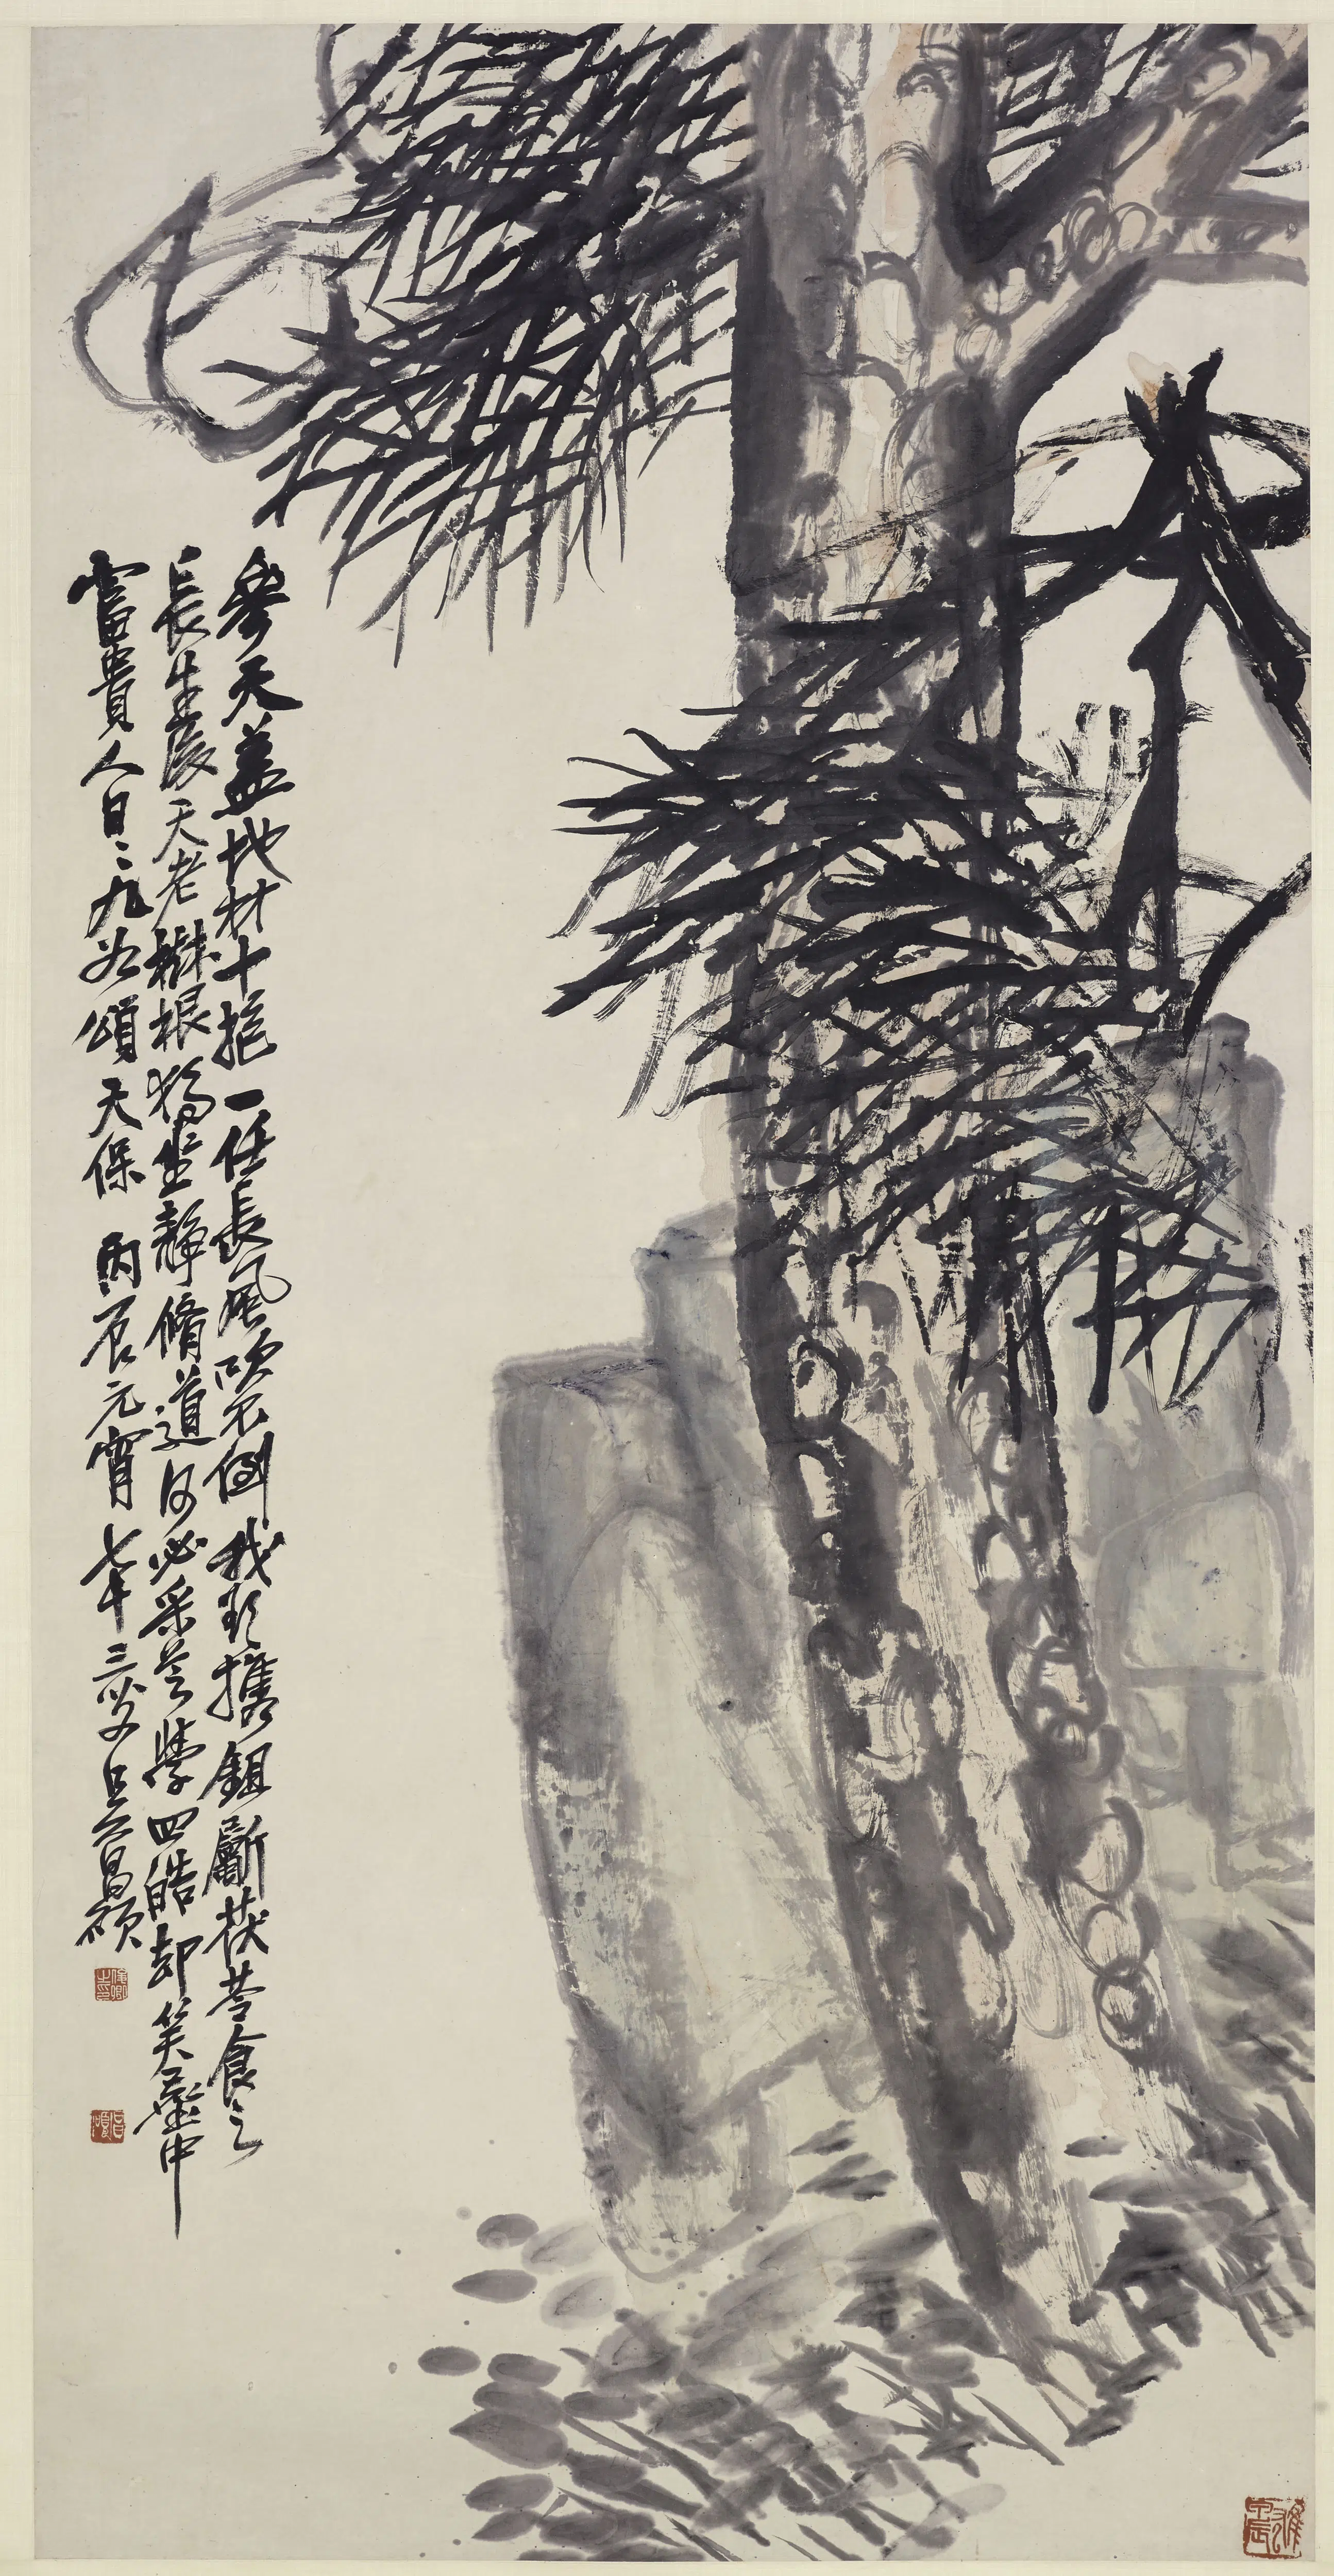 參天蓋地材十抱一任長風吹不倒我欲攜鉏斸茯苓食之
長生後天老樹根獨坐靜脩道何必采芝學四皓却笑壺中
富貴人日〻九如頌天保 丙辰元宵 七十三叟吳昌碩